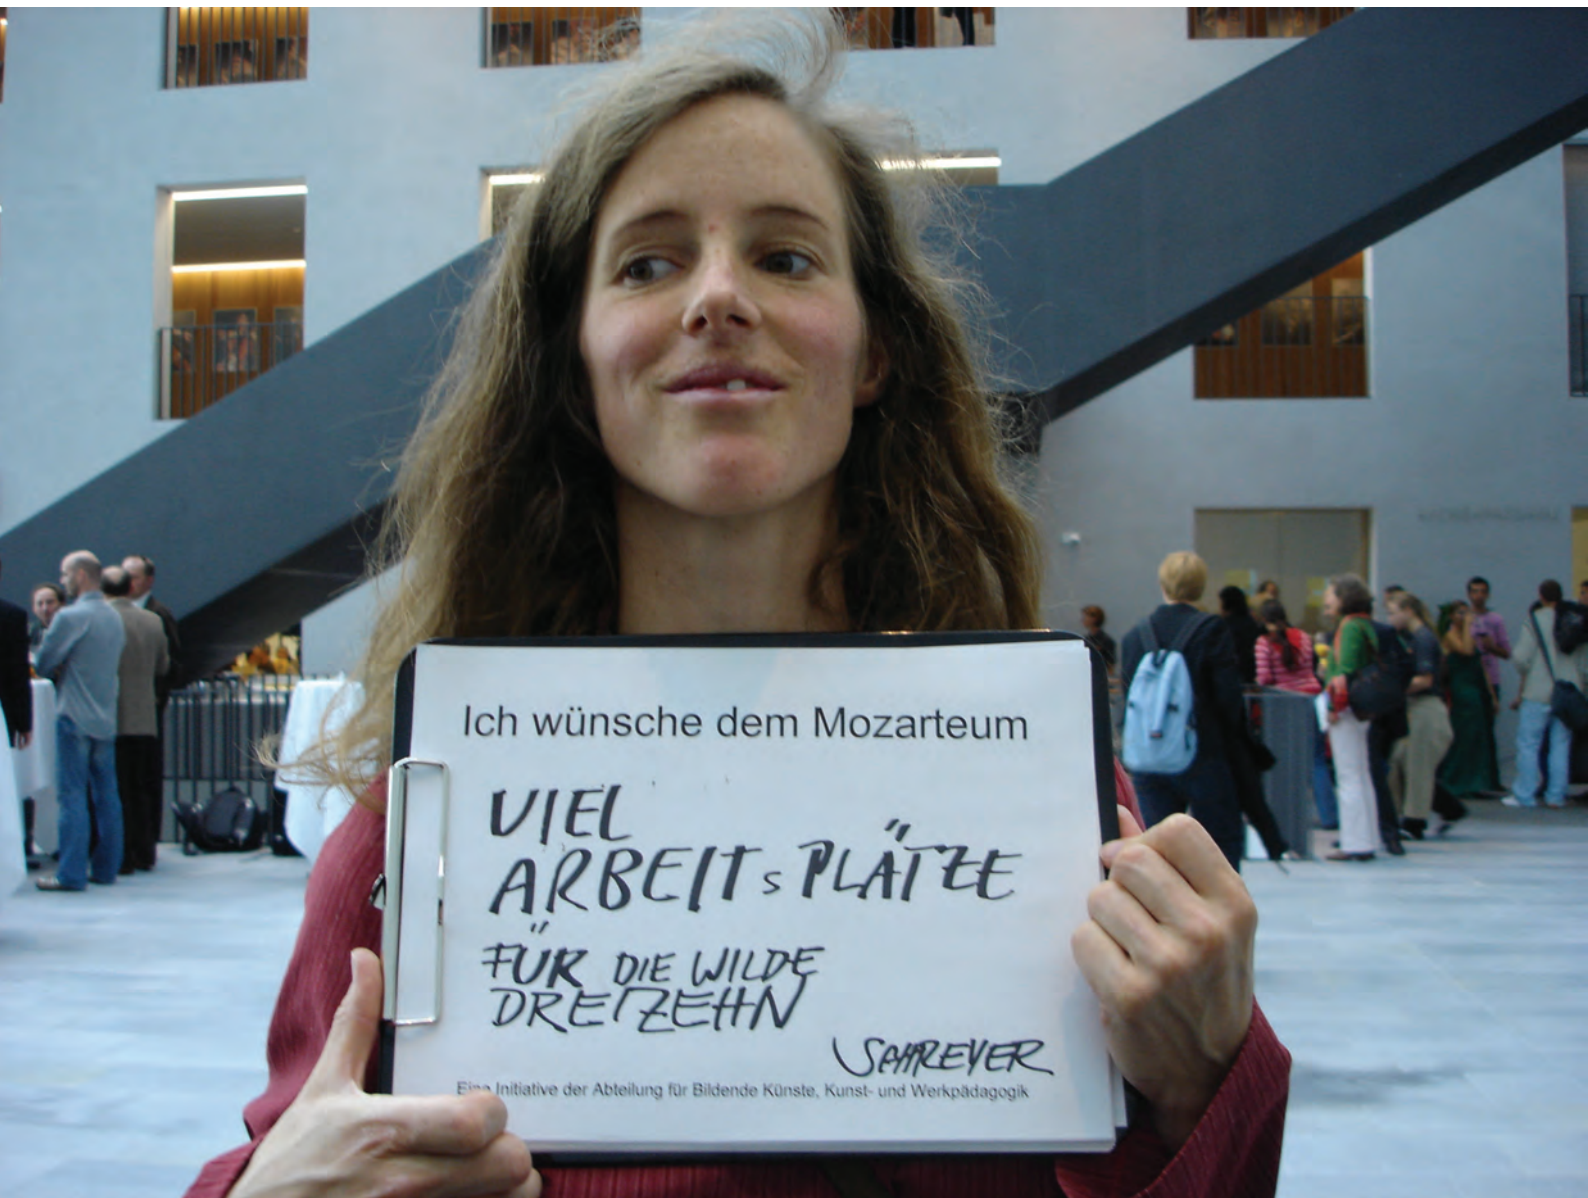 Ich wünsche dem Mozarteum
VIEL
ARBEITsPLÄTZE
FÜR DIE WILDE
DREIZEHN
SCHREYER
Eine Initiative der Abteilung für Bildende Künste, Kunst- und Werkpädagogik